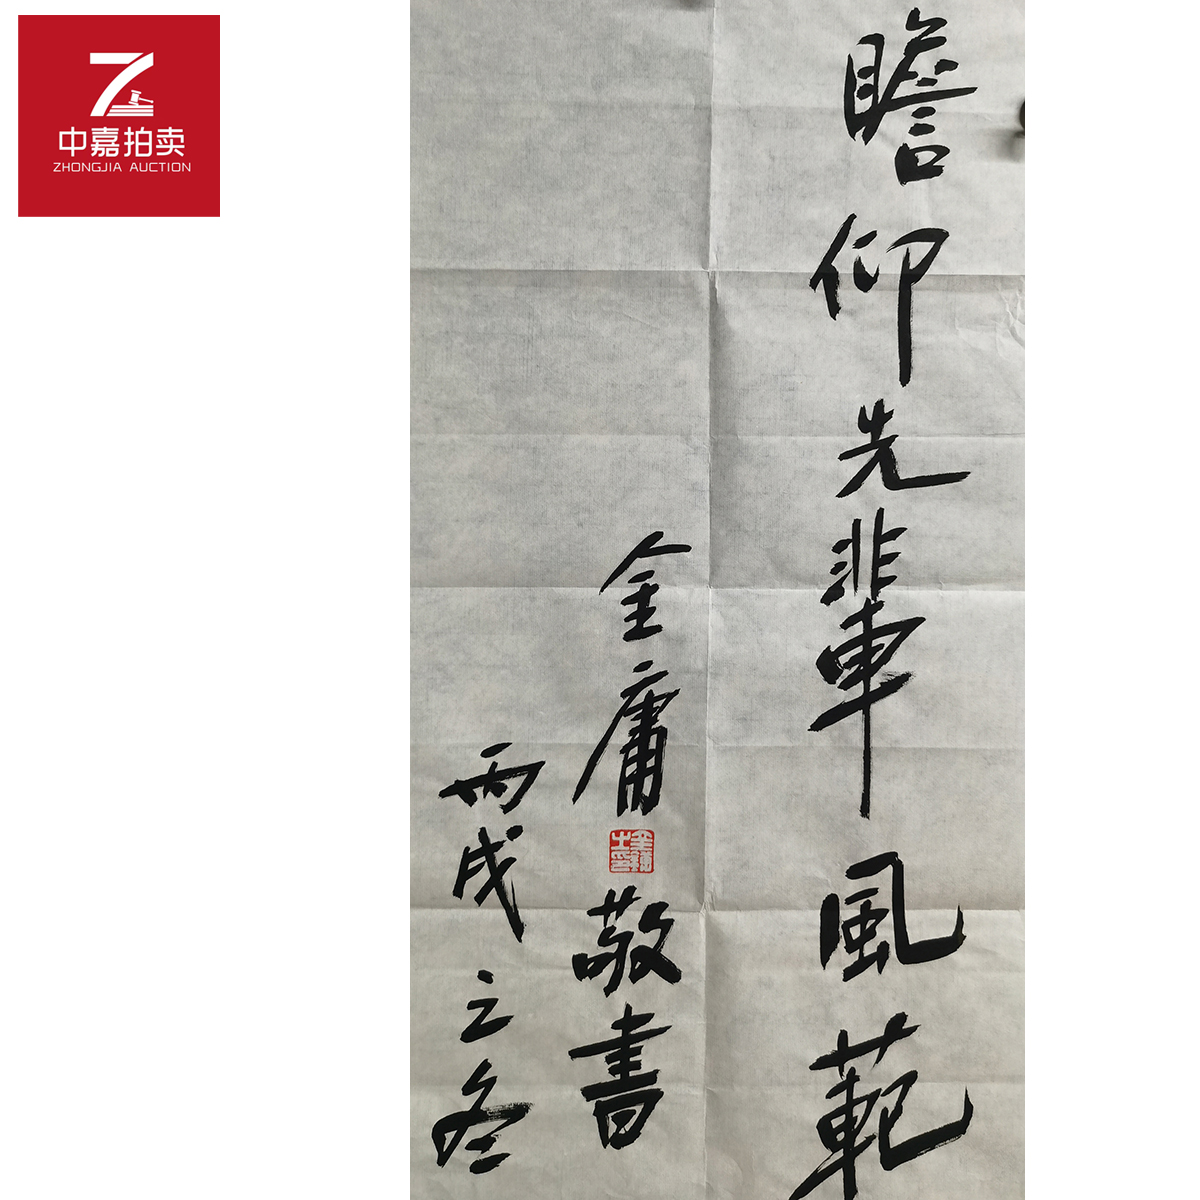 中嘉拍卖
ZHONGJIA AUCTION
瞻仰先輩風範
金庸敬書
丙戌之冬